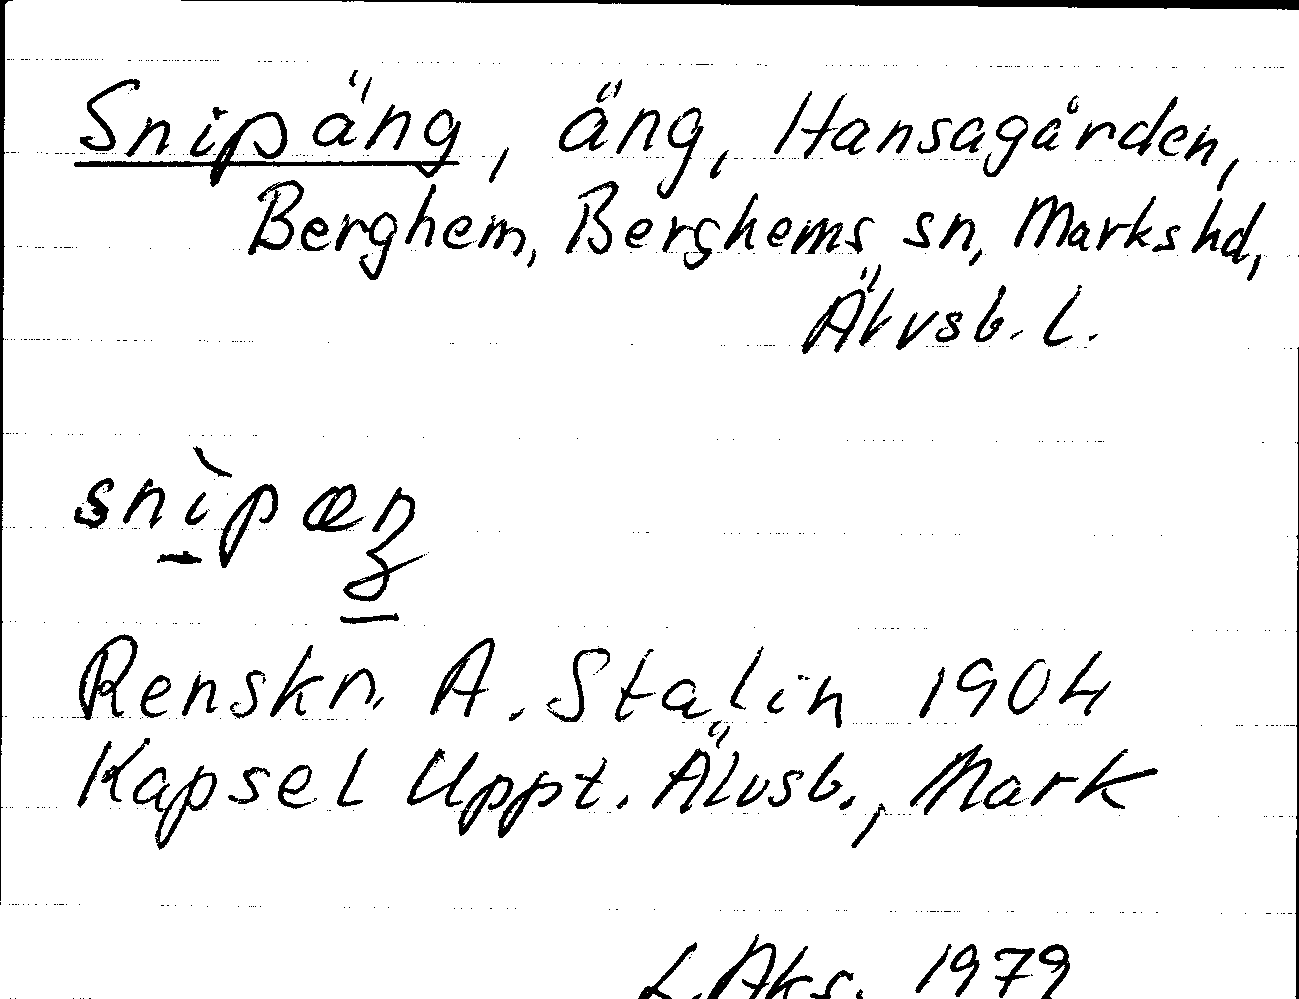 Snipäng, äng, Hansagården,
Berghem, Berghems sn, Marks hd,
Älvsb. l.
snìpæŋ
Renskr. A. Stalin 1904
Kapsel Uppt. Älvsb., Mark
L. Aks. 1979